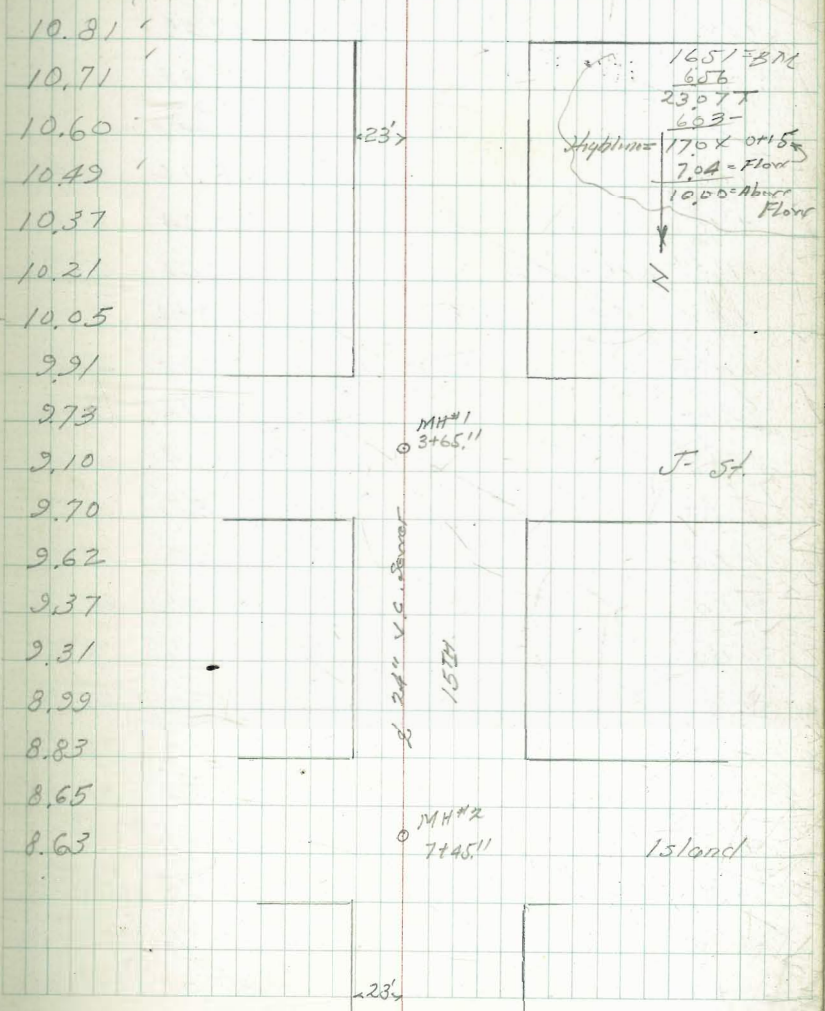 10.81
10.71
10.60
10.49
10.37
10.21
10.05
9.91
9.73
9.10
9.70
9.62
9.37
9.31
8.99
8.83
8.65
8.63
23'
1651=BM
656
23.07 T
603-
Highline= 17.04 0+15
7.04 = Flow
10.00=Above
Flow
N
MH#1
3+65.11
J- St.
24" V.C. Sewer
15TH
MH#2
7+45.11
Island
23'